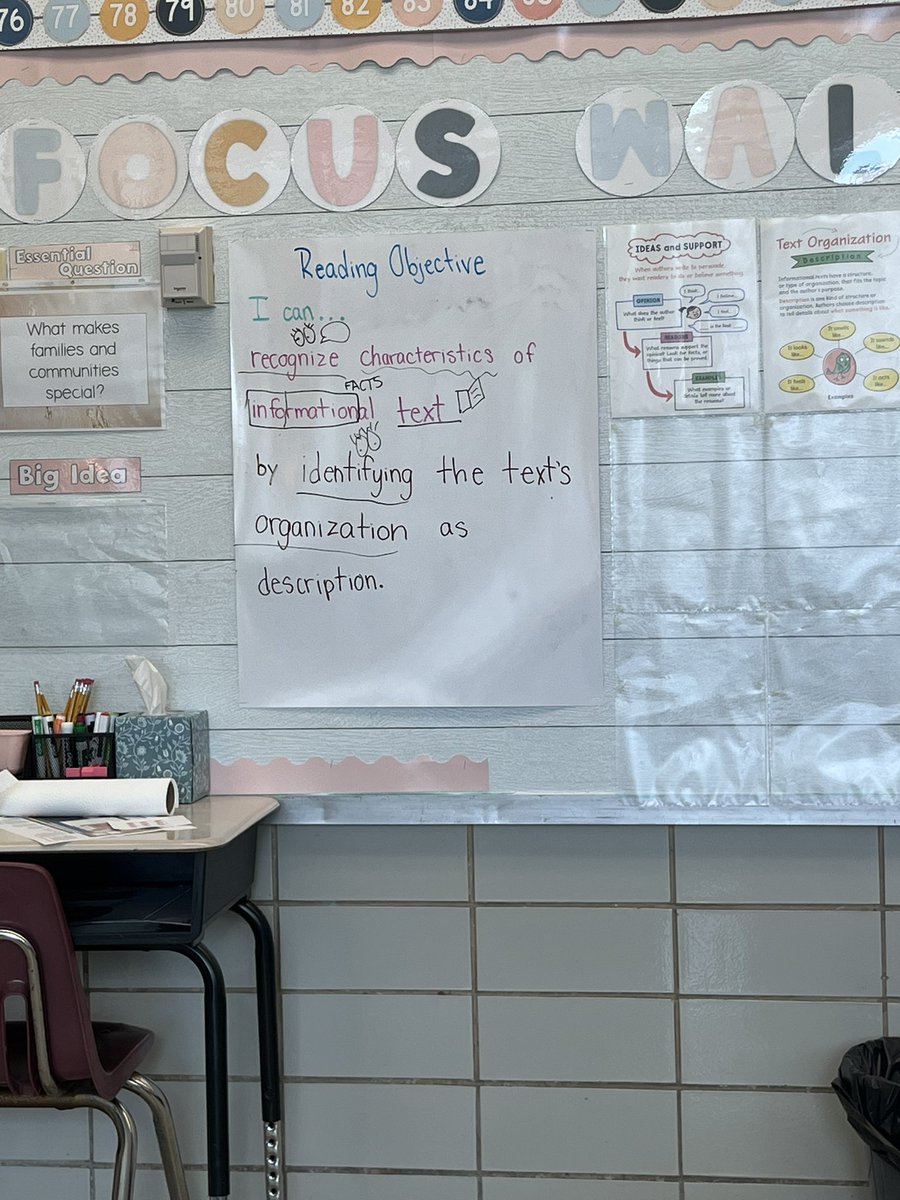 76 77 78 79 80 81 82 83 84
FOCUS WAL
Essential
Question
What makes
families and
communities
special?
Big Idea
Reading Objective
I can...
recognize characteristics of
FACTS
informational text
by identifying the text's
organization as
description.
IDEAS and SUPPORT
When authors write to persuade,
they want readers to do or believe something.
OPINION
What does the author
think or feel?
I think...
I believe...
I feel...
is the best!
REASONS
What reasons support the
opinion? Look for facts, or
things that can be proved.
EXAMPLES
What examples or
details tell more about
the reasons?
Text Organization
Description
Informational texts have a structure,
or type of organization, that fits the topic
and the author's purpose.
Description is one kind of structure or
organization. Authors choose description
to tell details about what something is like.
It smells like...
It looks like...
It sounds like...
It feels like...
It acts like...
Examples